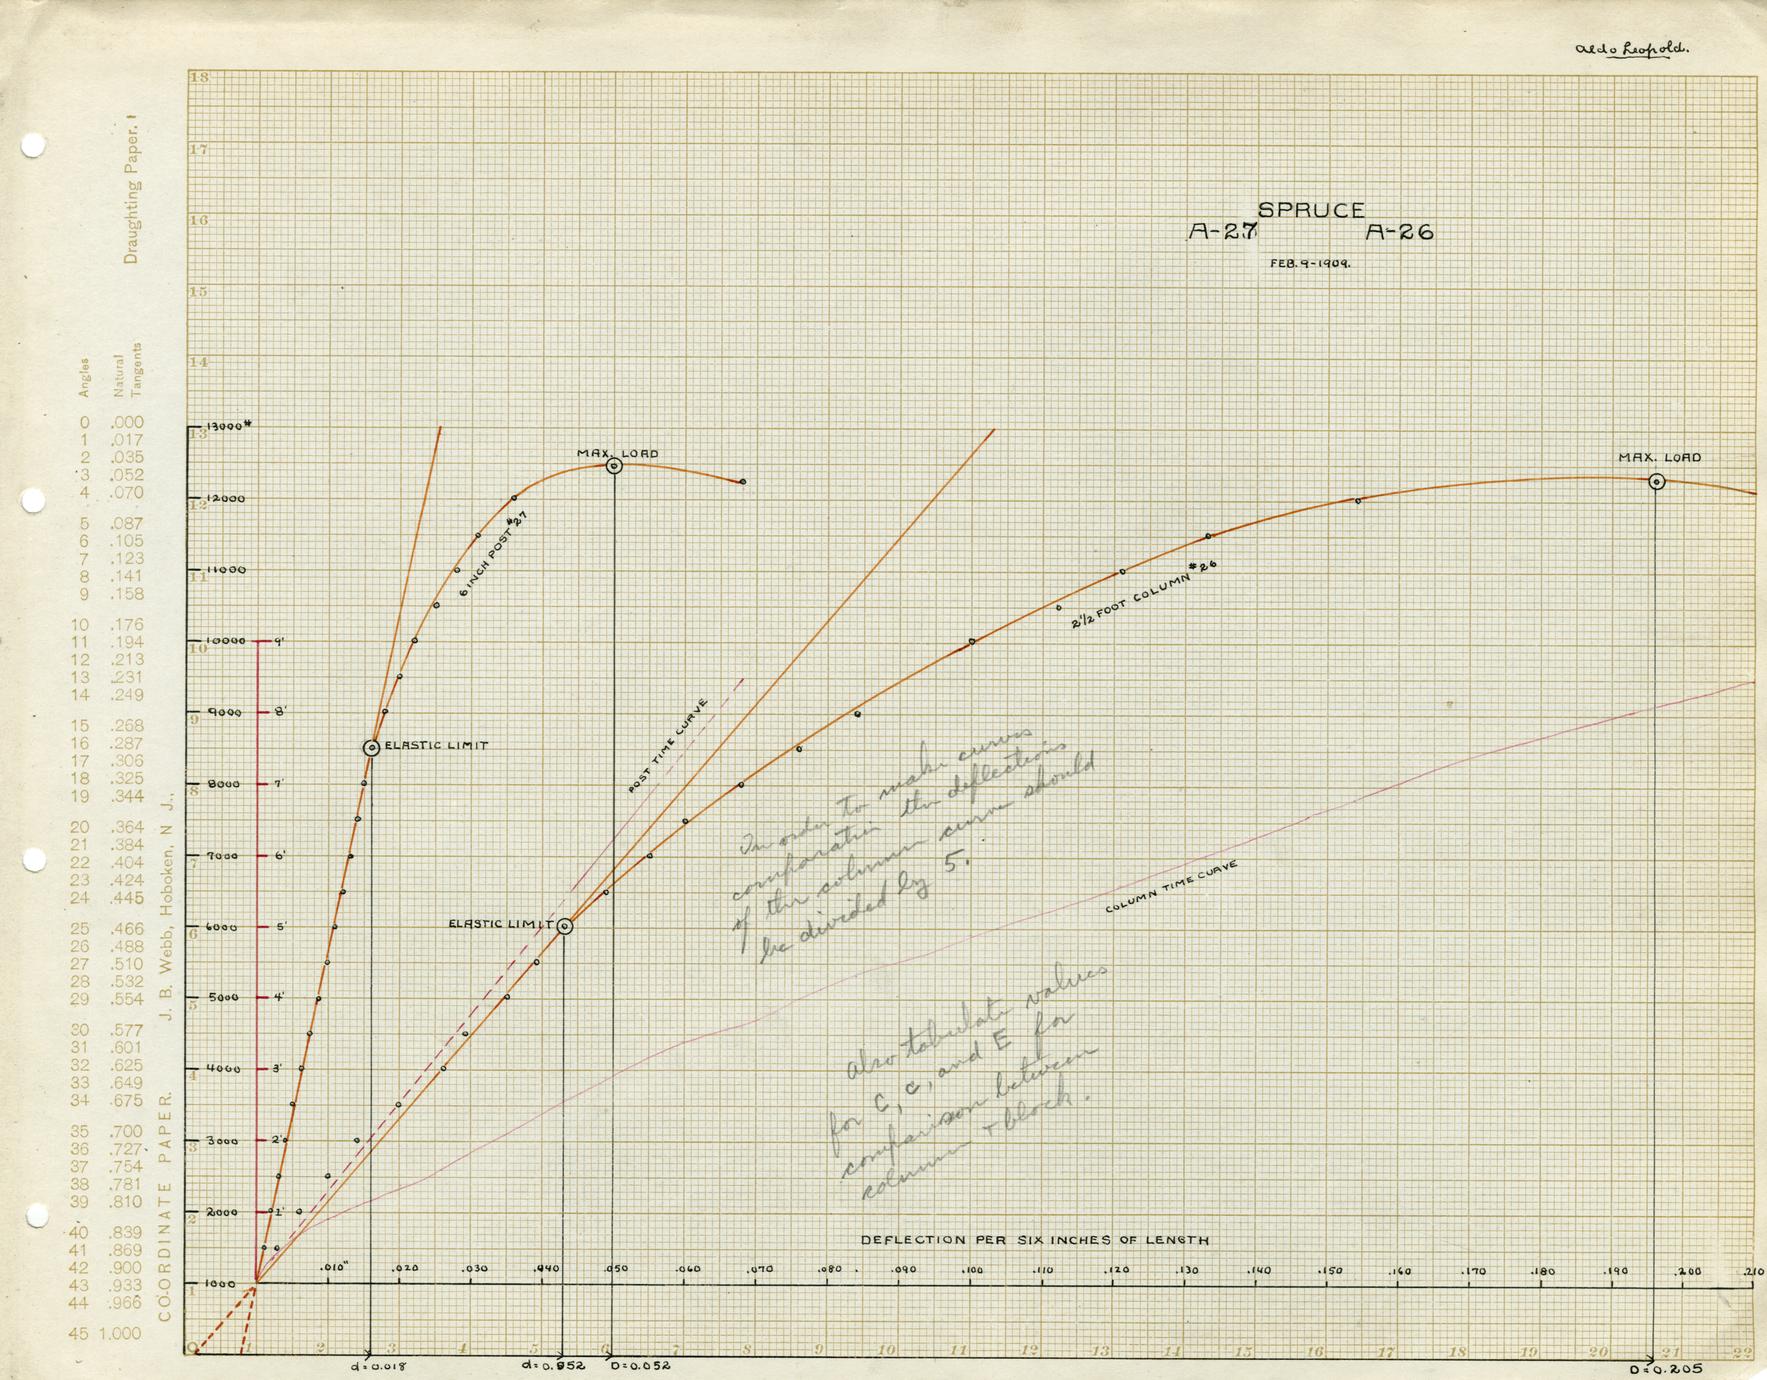 Aldo Leopold.
SPRUCE
A-27 A-26
FEB. 9-1909.
Draughting Paper.
Angles Natural Tangents
0 .000
1 .017
2 .035
3 .052
4 .070
5 .087
6 .105
7 .123
8 .141
9 .158
10 .176
11 .194
12 .213
13 .231
14 .249
15 .268
16 .287
17 .306
18 .325
19 .344
20 .364
21 .384
22 .404
23 .424
24 .445
25 .466
26 .488
27 .510
28 .532
29 .554
30 .577
31 .601
32 .625
33 .649
34 .675
35 .700
36 .727
37 .754
38 .781
39 .810
40 .839
41 .869
42 .900
43 .933
44 .966
45 1.000
COORDINATE PAPER. J. B. Webb, Hoboken, N J.,
18
17
16
15
14
13
12
11
10
9
8
7
6
5
4
3
2
1
0
13000#
12000
11000
10000
9000
8000
7000
6000
5000
4000
3000
2000
1000
9'
8'
7'
6'
5'
4'
3'
2'
1'
MAX. LOAD
MAX. LOAD
6 INCH POST #27
2 1/2 FOOT COLUMN #26
ELASTIC LIMIT
POST TIME CURVE
ELASTIC LIMIT
In order to make curves
comparative the deflections
of the column curve should
be divided by 5.
COLUMN TIME CURVE
Also tabulate values
for C, c, and E for
comparison between
column + block.
DEFLECTION PER SIX INCHES OF LENGTH
.010" .020 .030 .040 .050 .060 .070 .080 .090 .100 .110 .120 .130 .140 .150 .160 .170 .180 .190 .200 .210
1 2 3 4 5 6 7 8 9 10 11 12 13 14 15 16 17 18 19 20 21 22
d=0.018 D=0.052 D=0.205